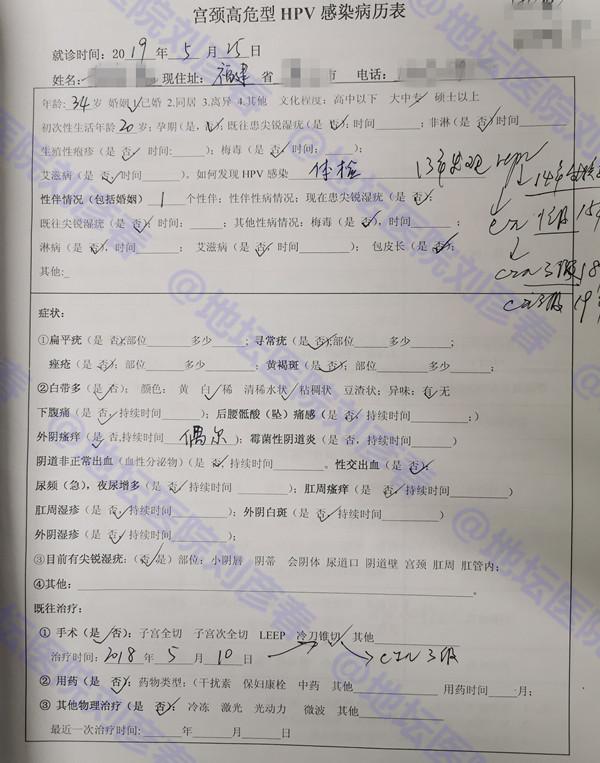 宫颈高危型 HPV 感染病历表
就诊时间: 2019 年 5 月 25 日
姓名: 现住址: 福建 省 市 电话:
年龄: 34 岁 婚姻 1.已婚 2.同居 3.离异 4.其他 文化程度: 高中以下 大中专 硕士以上
初次性生活年龄 20 岁; 孕期(是, 否); 既往患尖锐湿疣(是 否) 时间 ; 非淋(是 否)时间
生殖性疱疹(是 否, 时间: ); 梅毒(是 否, 时间: );
艾滋病(是 否)时间 ), 如何发现 HPV 感染 体检 13年发现 HPV
14年
性伴情况(包括婚姻) 1 个性伴; 性伴性病情况: 现在患尖锐湿疣(是 否);
既往尖锐湿疣(是 否)时间: ; 其他性病情况: 梅毒(是 否), 时间 ;
淋病(是 否), 时间 ; 艾滋病(是 否, 时间 ); 包皮长(是 否);
CIN 3级 18
19
其他:
症状:
①扁平疣(是 否)部位 多少 ; 寻常疣(是 否)部位 多少 ;
痤疮(是 否); 部位 多少 ; 黄褐斑(是 否); 部位 多少 ;
②白带多(是 否); 颜色: 黄 白 稀 清稀水状 粘稠状 豆渣状; 异味: 有 无
下腹痛(是 否, 持续时间 ); 后腰骶酸(坠)痛感(是 否, 持续时间 ;)
外阴瘙痒(是 否,持续时间 偶尔 ); 霉菌性阴道炎(是 否, 持续时间 )
阴道非正常出血(血性分泌物)(是 否, 持续时间 。性交出血(是 否);
尿频(急), 夜尿增多(是 否, 持续时间 ); 肛周瘙痒(是 否, 持续时间 )
肛周湿疹(是 否, 持续时间 ); 外阴白斑(是 否, 持续时间 )
外阴湿疹(是 否, 持续时间 );
③目前有尖锐湿疣: (否 是) 部位: 小阴唇 阴蒂 会阴体 尿道口 阴道壁 宫颈 肛周 肛管内;
④其他: 。
既往治疗:
① 手术(是 否): 子宫全切 子宫次全切 LEEP 冷刀锥切 其他
治疗时间: 2018 年 5 月 10 日 CIN 3级
② 用药(是 否): 药物类型: (干扰素 保妇康栓 中药 其他 用药时间 月;
③ 其他物理治疗(是 否): 冷冻 激光 光动力 微波 其他
最近一次治疗时间: 年 月 日
@地坛医院刘彦春